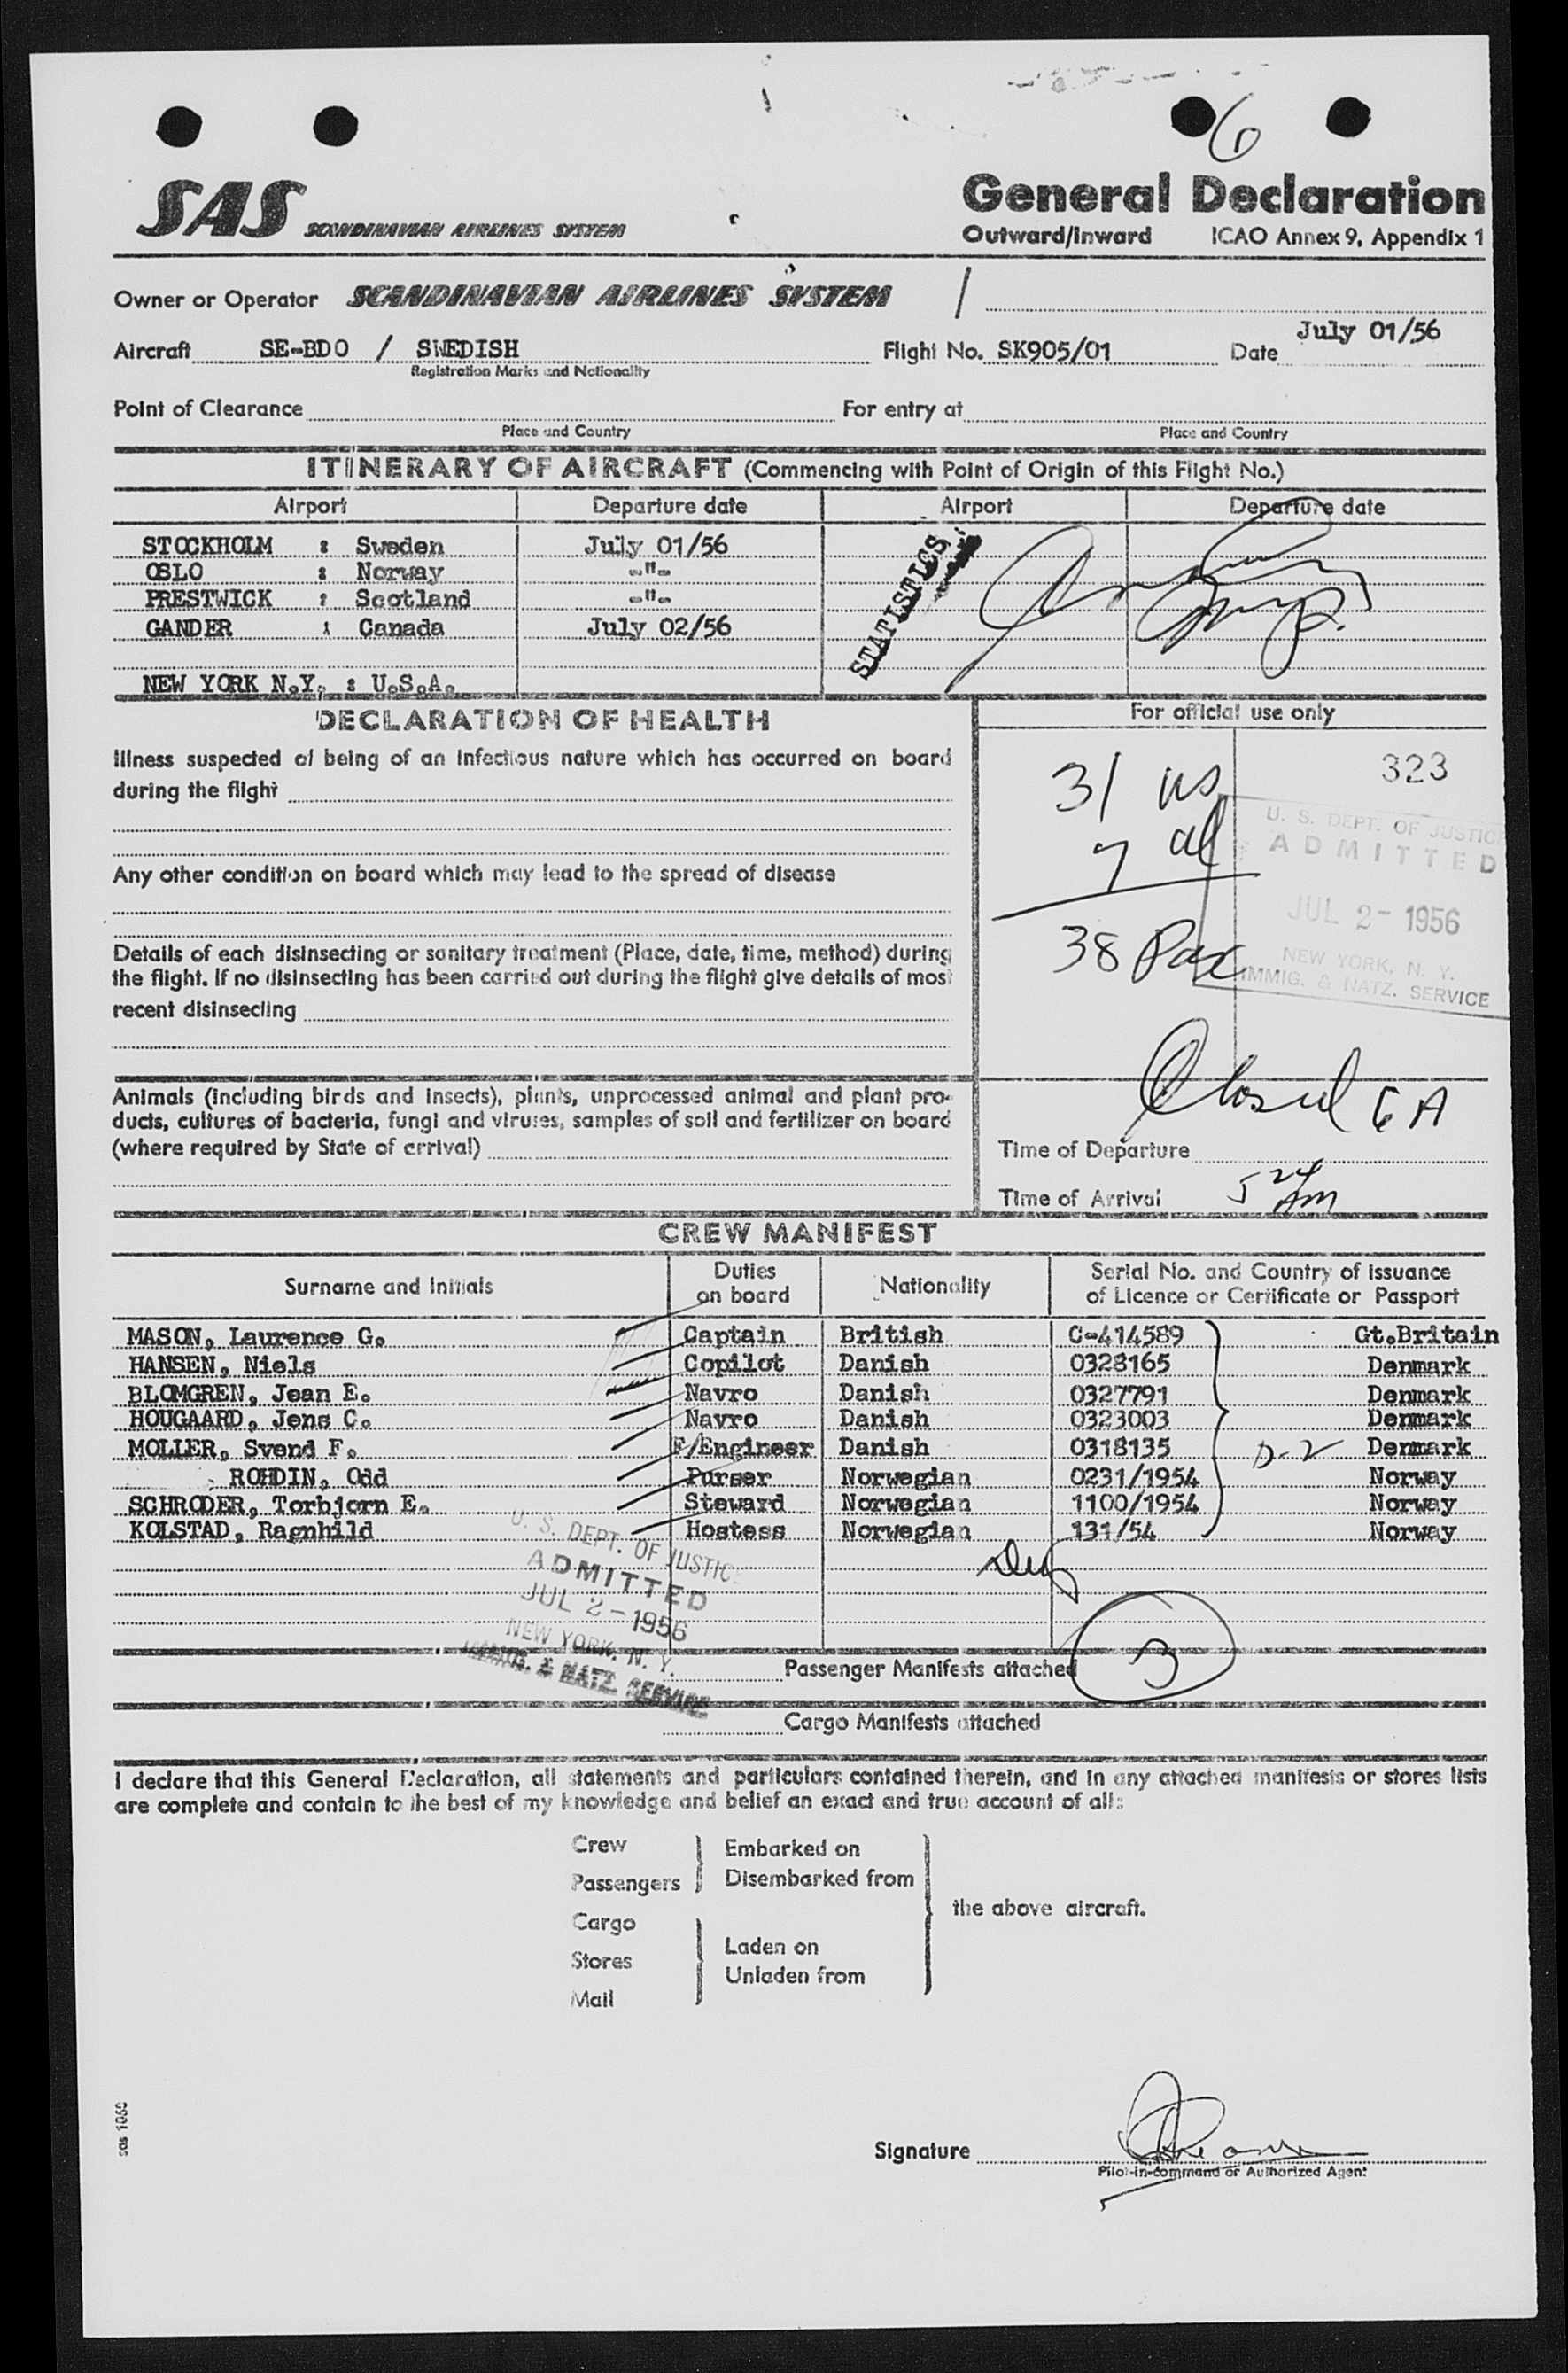 6
SAS SCANDINAVIAN AIRLINES SYSTEM
General Declaration
Outward/Inward ICAO Annex 9, Appendix 1
Owner or Operator SCANDINAVIAN AIRLINES SYSTEM /
Aircraft SE-BDO / SWEDISH Flight No. SK905/01 Date July 01/56
Registration Marks and Nationality
Point of Clearance For entry at
Place and Country Place and Country
ITINERARY OF AIRCRAFT (Commencing with Point of Origin of this Flight No.)
Airport Departure date Airport Departure date
STOCKHOLM : Sweden July 01/56
OSLO : Norway -"-
PRESTWICK : Scotland -"-
GANDER : Canada July 02/56
NEW YORK N.Y. : U.S.A.
STATISTICS
DECLARATION OF HEALTH
Illness suspected of being of an infectious nature which has occurred on board
during the flight
Any other condition on board which may lead to the spread of disease
Details of each disinsecting or sanitary treatment (Place, date, time, method) during
the flight. If no disinsecting has been carried out during the flight give details of most
recent disinsecting
Animals (including birds and insects), plants, unprocessed animal and plant pro-
ducts, cultures of bacteria, fungi and viruses, samples of soil and fertilizer on board
(where required by State of arrival)
For official use only
31 us
7 al
38 Pax
323
U. S. DEPT. OF JUSTICE
ADMITTED
JUL 2- 1956
NEW YORK, N. Y.
IMMIG. & NATZ. SERVICE
Closed 6 A
Time of Departure
Time of Arrival 5 24 Am
CREW MANIFEST
Surname and Initials Duties on board Nationality Serial No. and Country of issuance of Licence or Certificate or Passport
MASON, Laurence G. Captain British C-414589 Gt.Britain
HANSEN, Niels Copilot Danish 0328165 Denmark
BLOMGREN, Jean E. Navro Danish 0327791 Denmark
HOUGAARD, Jens C. Navro Danish 0323003 Denmark
MOLLER, Svend F. F/Engineer Danish 0318135 D-2 Denmark
ROHDIN, Odd Purser Norwegian 0231/1954 Norway
SCHRODER, Torbjorn E. Steward Norwegian 1100/1954 Norway
KOLSTAD, Ragnhild Hostess Norwegian 131/54 Norway
U. S. DEPT. OF JUSTICE
ADMITTED
JUL 2-1956
NEW YORK, N. Y.
IMMIG. & NATZ. SERVICE
Passenger Manifests attached 3
Cargo Manifests attached
I declare that this General Declaration, all statements and particulars contained therein, and in any attached manifests or stores lists
are complete and contain to the best of my knowledge and belief an exact and true account of all:
Crew
Passengers
Embarked on
Disembarked from
Cargo
Stores
Mail
Laden on
Unladen from
the above aircraft.
sas 1060
Signature
Pilot-in-command or Authorized Agent